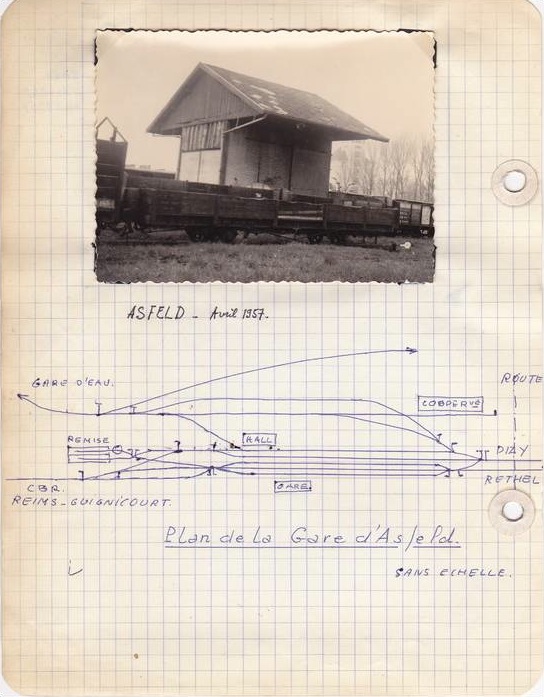 ASFELD - Avril 1957.
GARE D'EAU.
ROUTE
COOPERVE
REMISE
HALL
DIZY
RETHEL
C.B.R.
GARE
REIMS-GUIGNICOURT.
Plan de la Gare d'Asfeld.
SANS ECHELLE.